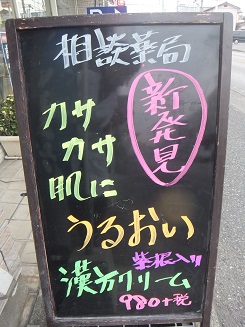 相談薬局
新発見
カサ
カサ
肌に
うるおい
紫根入り
漢方クリーム
980+税